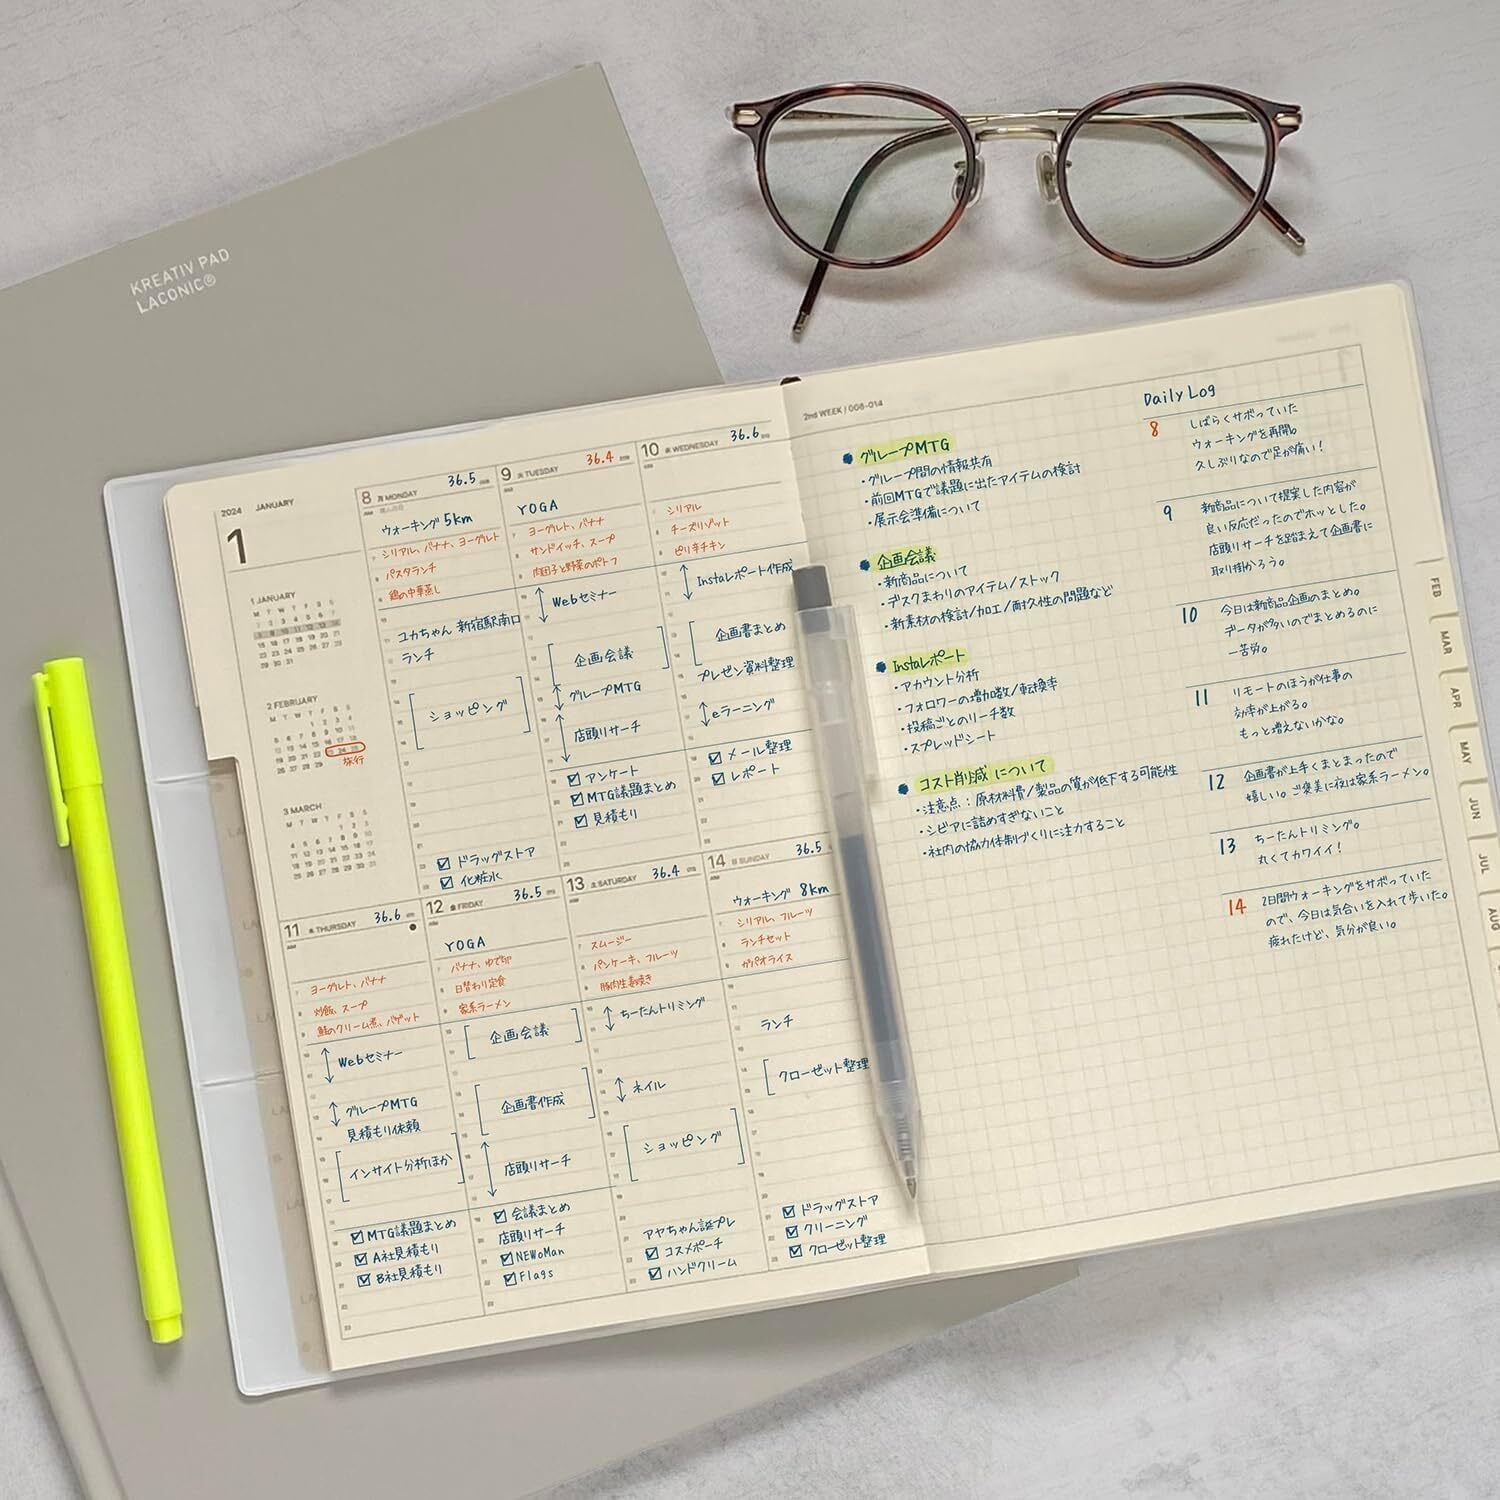 KREATIV PAD
LACONIC®
2024 JANUARY
1
1 JANUARY
M T W T F S S
1 2 3 4 5 6 7
8 9 10 11 12 13 14
15 16 17 18 19 20 21
22 23 24 25 26 27 28
29 30 31
2 FEBRUARY
M T W T F S S
1 2 3 4
5 6 7 8 9 10 11
12 13 14 15 16 17 18
19 20 21 22 23 24 25
26 27 28 29
旅行
3 MARCH
M T W T F S S
1 2 3
4 5 6 7 8 9 10
11 12 13 14 15 16 17
18 19 20 21 22 23 24
25 26 27 28 29 30 31
8 月 MONDAY 36.5
成人の日
ウォーキング 5km
シリアル、バナナ、ヨーグルト
パスタランチ
鶏の中華蒸し
ユカちゃん 新宿駅南口
ランチ
ショッピング
ドラッグストア
化粧水
9 火 TUESDAY 36.4
YOGA
ヨーグルト、バナナ
サンドイッチ、スープ
肉団子と野菜のポトフ
Webセミナー
企画会議
グループMTG
店頭リサーチ
アンケート
MTG議題まとめ
見積もり
10 水 WEDNESDAY 36.6
シリアル
チーズリゾット
ピリ辛チキン
Instaレポート作成
企画書まとめ
プレゼン資料整理
eラーニング
メール整理
レポート
11 木 THURSDAY 36.6
ヨーグルト、バナナ
炒飯、スープ
鮭のクリーム煮、バゲット
Webセミナー
グループMTG
見積もり依頼
インサイト分析ほか
MTG議題まとめ
A社見積もり
B社見積もり
12 金 FRIDAY 36.5
YOGA
バナナ、ゆで卵
日替わり定食
家系ラーメン
企画会議
企画書作成
店頭リサーチ
会議まとめ
店頭リサーチ
NEWoMan
Flags
13 土 SATURDAY 36.4
スムージー
パンケーキ、フルーツ
豚肉生姜焼き
ちーたんトリミング
ネイル
ショッピング
アヤちゃん誕プレ
コスメポーチ
ハンドクリーム
14 日 SUNDAY 36.5
ウォーキング 8km
シリアル、フルーツ
ランチセット
ガパオライス
ランチ
クローゼット整理
ドラッグストア
クリーニング
クローゼット整理
2nd WEEK / 008-014
グループMTG
・グループ間の情報共有
・前回MTGで議題に出たアイテムの検討
・展示会準備について
企画会議
・新商品について
・デスクまわりのアイテム/ストック
・新素材の検討/加工/耐久性の問題など
Instaレポート
・アカウント分析
・フォロワーの増加数/転換率
・投稿ごとのリーチ数
・スプレッドシート
コスト削減について
・注意点：原材料費/製品の質が低下する可能性
・シビアに詰めすぎないこと
・社内の協力体制づくりに注力すること
Daily Log
8 しばらくサボっていた
ウォーキングを再開。
久しぶりなので足が痛い！
9 新商品について提案した内容が
良い反応だったのでホッとした。
店頭リサーチを踏まえて企画書に
取り掛かろう。
10 今日は新商品企画のまとめ。
データが多いのでまとめるのに
一苦労。
11 リモートのほうが仕事の
効率が上がる。
もっと増えないかな。
12 企画書が上手くまとまったので
嬉しい。ご褒美に夜は家系ラーメン。
13 ちーたんトリミング。
丸くてカワイイ！
14 2日間ウォーキングをサボっていた
ので、今日は気合いを入れて歩いた。
疲れたけど、気分が良い。
FEB
MAR
APR
MAY
JUN
JUL
AUG